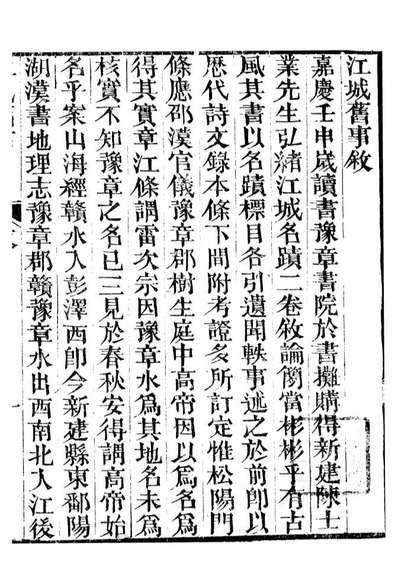 江城舊事敘
嘉慶壬申歲讀書豫章書院於書攤購得新建陳士
業先生弘緒江城名蹟二卷敘論閎當彬彬乎有古
風其書以名蹟標目各引遺聞軼事述之於前卽以
歷代詩文錄本條下間附考證多所訂定惟松陽門
條應邵漢官儀豫章郡樹生庭中高帝因以爲名爲
得其實章江條謂雷次宗因豫章水爲其地名未爲
核實不知豫章之名已三見於春秋安得謂高帝始
名乎案山海經贛水入彭澤西卽今新建縣東鄱陽
湖漢書地理志豫章郡贛豫章水出西南北入江後